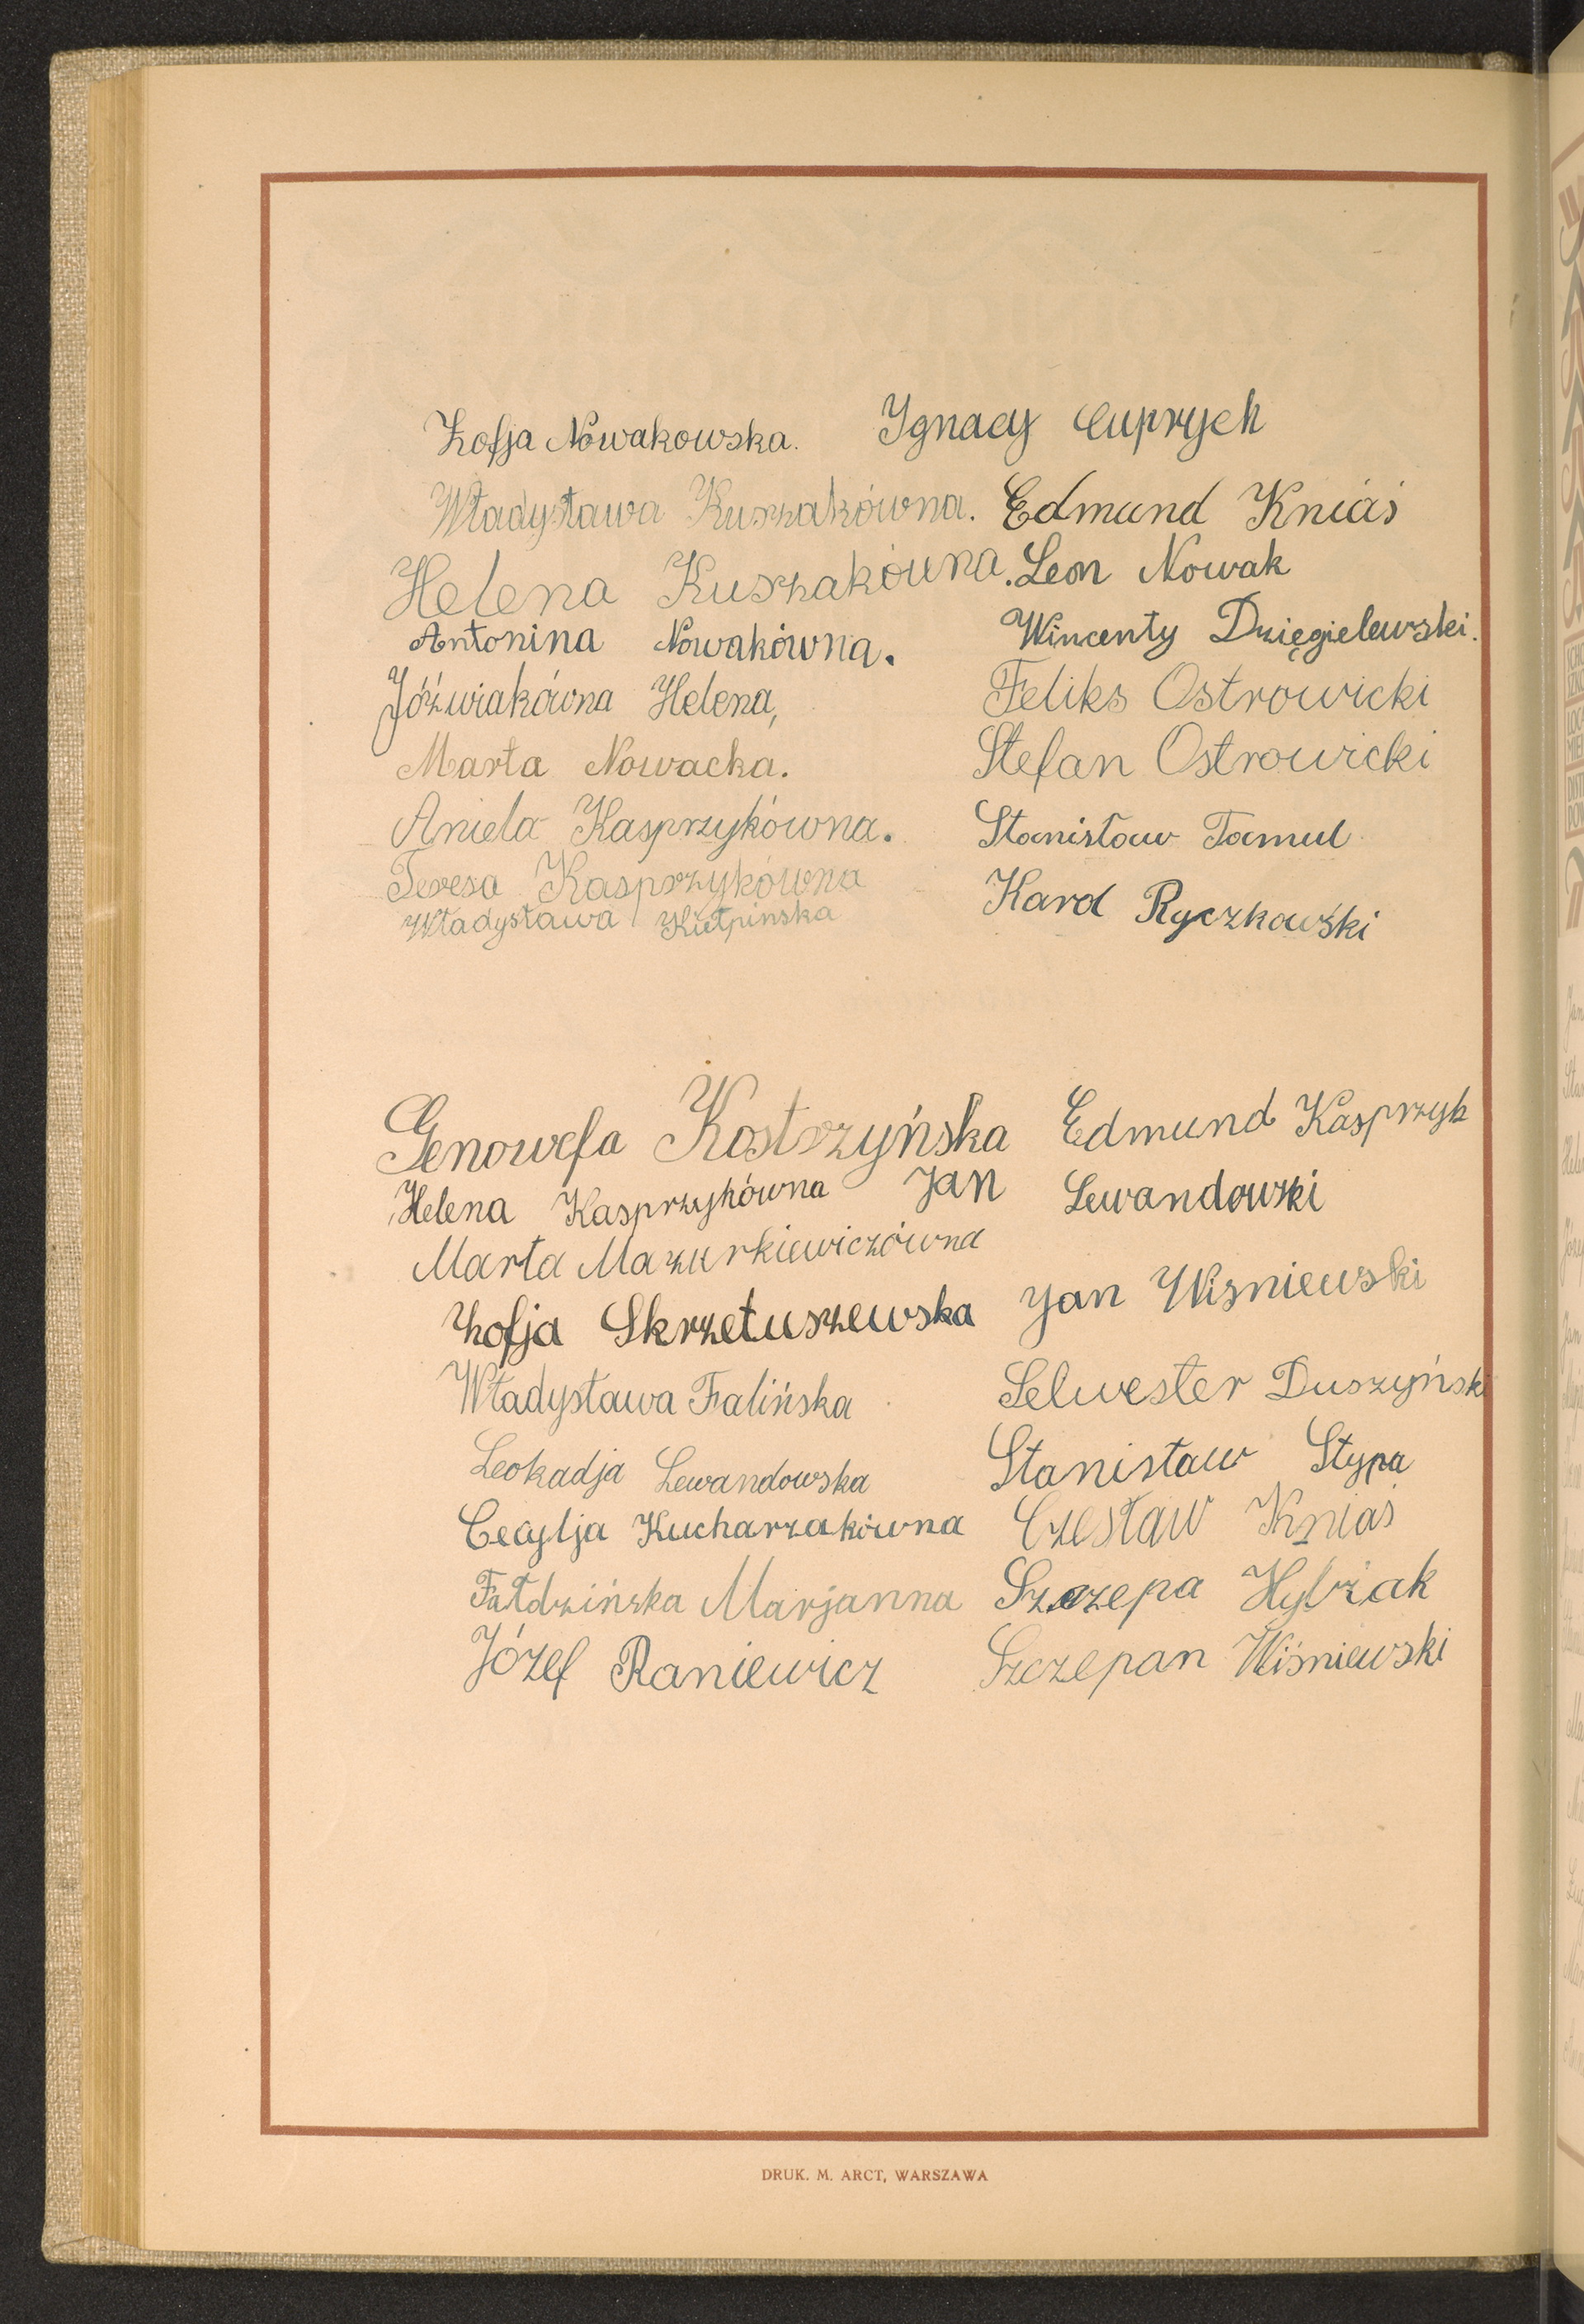 Zofja Nowakowska. Ignacy Cuprych
Władysława Kuszakówna. Edmund Kniaś
Helena Kuszakówna. Leon Nowak
Antonina Nowakówna. Wincenty Dzięgielewski.
Jóźwiakówna Helena, Feliks Ostrowicki
Marta Nowacka. Stefan Ostrowicki
Aniela Kasprzykówna. Stanisław Tamul
Teresa Kasprzykówna Karol Ryczkowski
Władysława Kiełpińska
Genowefa Kostrzyńska Edmund Kasprzyk
Helena Kasprzykówna Jan Lewandowski
Marta Mazurkiewiczówna
Zofja Skrzetuszewska Jan Wiśniewski
Władysława Falińska Selwester Duszyński
Leokadja Lewandowska Stanisław Stypa
Cecylja Kucharzakówna Czesław Kniaś
Fałdzińska Marjanna Szczepa
Józef Raniewicz Szczepan Wiśniewski
DRUK. M. ARCT, WARSZAWA